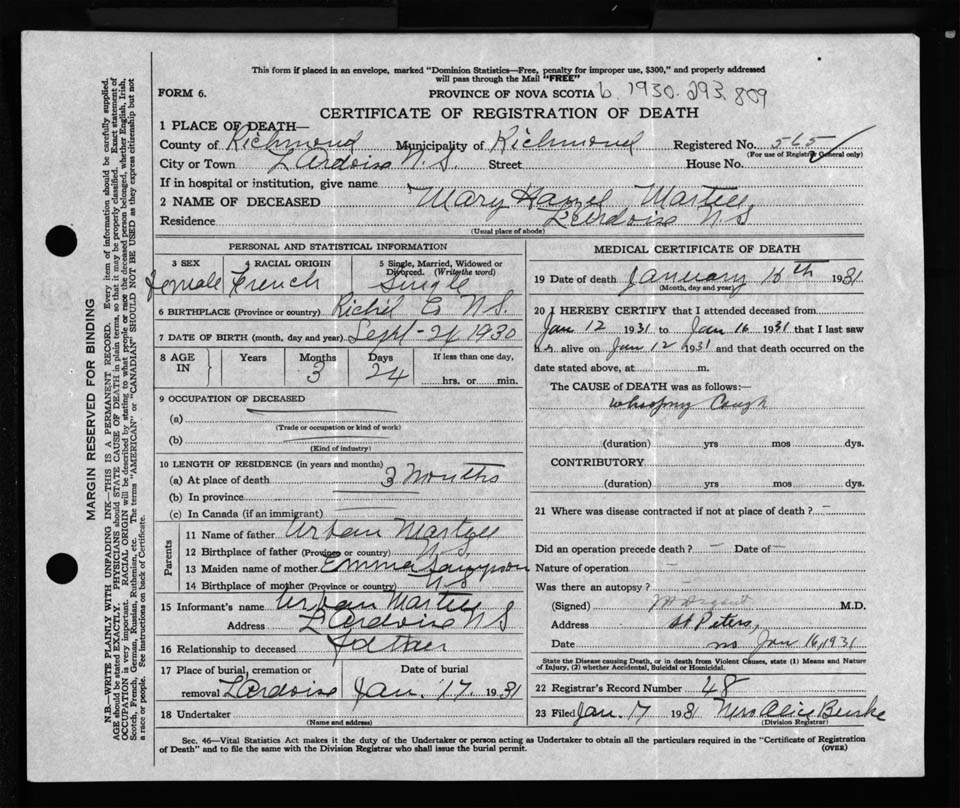 This form if placed in an envelope, marked "Dominion Statistics—Free, penalty for improper use, $300," and properly addressed
will pass through the Mail "FREE"
FORM 6. PROVINCE OF NOVA SCOTIA b. 1930. 293. 809
CERTIFICATE OF REGISTRATION OF DEATH
1 PLACE OF DEATH—
County of Richmond Municipality of Richmond Registered No. 565
(For use of Registrar General only)
City or Town L'Ardoise N.S. Street House No.
If in hospital or institution, give name
2 NAME OF DECEASED Mary Hazel Martell
Residence L'Ardoise N.S
(Usual place of abode)
PERSONAL AND STATISTICAL INFORMATION
3 SEX 4 RACIAL ORIGIN 5 Single, Married, Widowed or
Divorced. (Write the word)
female French Single
6 BIRTHPLACE (Province or country) Richd Co N.S.
7 DATE OF BIRTH (month, day and year) Sept - 21 1930
8 AGE IN Years Months Days If less than one day,
3 24 hrs. or min.
9 OCCUPATION OF DECEASED
(a)
(Trade or occupation or kind of work)
(b)
(Kind of industry)
10 LENGTH OF RESIDENCE (in years and months)
(a) At place of death 3 Months
(b) In province
(c) In Canada (if an immigrant)
Parents
11 Name of father Urban Martell
12 Birthplace of father (Province or country) N.S.
13 Maiden name of mother Emma Sampson
14 Birthplace of mother (Province or country) N S
15 Informant's name Urban Martell
Address L'Ardoise N S
16 Relationship to deceased father
17 Place of burial, cremation or Date of burial
removal L'Ardoise Jan. 17. 1931
18 Undertaker
(Name and address)
MEDICAL CERTIFICATE OF DEATH
19 Date of death January 1931
(Month, day and year)
20 I HEREBY CERTIFY that I attended deceased from
Jan 12 1931 to Jan 16 1931 that I last saw
her alive on Jan 12 1931 and that death occurred on the
date stated above, at m.
The CAUSE of DEATH was as follows:—
Whooping Cough
(duration) yrs mos dys.
CONTRIBUTORY
(duration) yrs mos dys.
21 Where was disease contracted if not at place of death? —
Did an operation precede death? — Date of —
Nature of operation —
Was there an autopsy? —
(Signed) M.D.
Address St Peters,
Date Jan 16, 1931
State the Disease causing Death, or in death from Violent Causes, state (1) Means and Nature
of Injury, (2) whether Accidental, Suicidal or Homicidal.
22 Registrar's Record Number 48
23 Filed Jan. 17 1931 Mrs Alice Burke
(Division Registrar)
Sec. 46—Vital Statistics Act makes it the duty of the Undertaker or person acting as Undertaker to obtain all the particulars required in the "Certificate of Registration
of Death" and to file the same with the Division Registrar who shall issue the burial permit. (OVER)
MARGIN RESERVED FOR BINDING
N.B.—WRITE PLAINLY WITH UNFADING INK—THIS IS A PERMANENT RECORD. Every item of information should be carefully supplied.
AGE should be stated EXACTLY. PHYSICIANS should STATE CAUSE OF DEATH in plain terms, so that it may be properly classified. Exact statement of
OCCUPATION is very important. RACIAL ORIGIN will be described by stating to what people or race the deceased person belonged, whether English, Irish,
Scotch, French, German, Russian, Ruthenian, etc. The terms "AMERICAN" or "CANADIAN" SHOULD NOT BE USED as they express citizenship but not
a race or people. See instructions on back of Certificate.